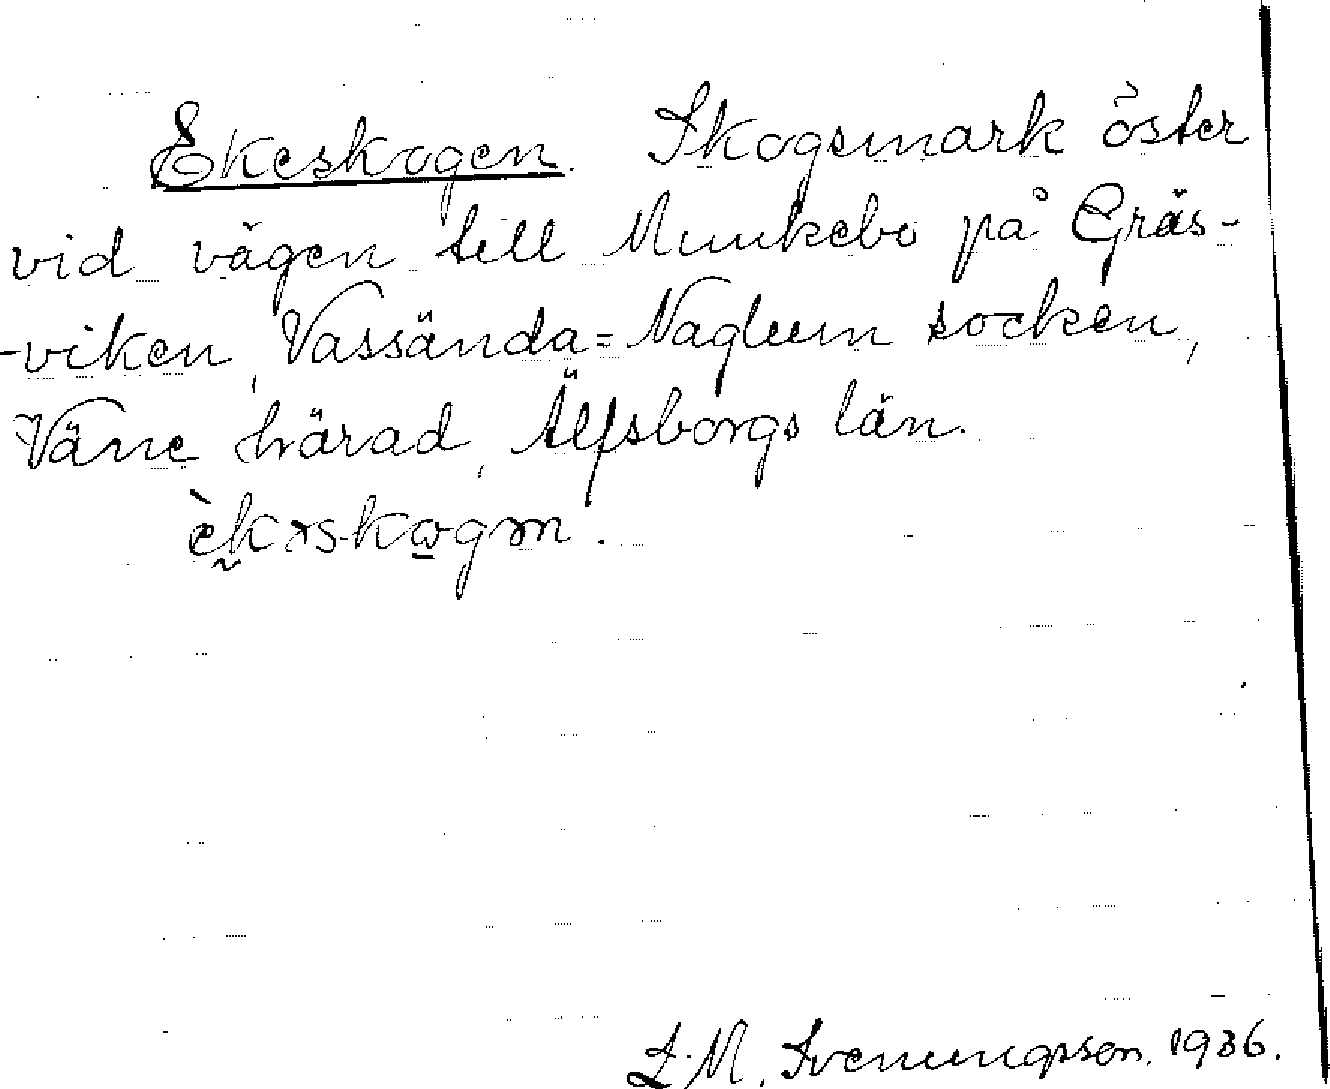 Ekeskogen. Skogsmark öster
vid vägen till Munkebo på Gräs-
-viken, Vassända=Naglum socken,
Väne härad, Älfsborgs län.
èkəskogən.
L. M. Svenungsson. 1936.